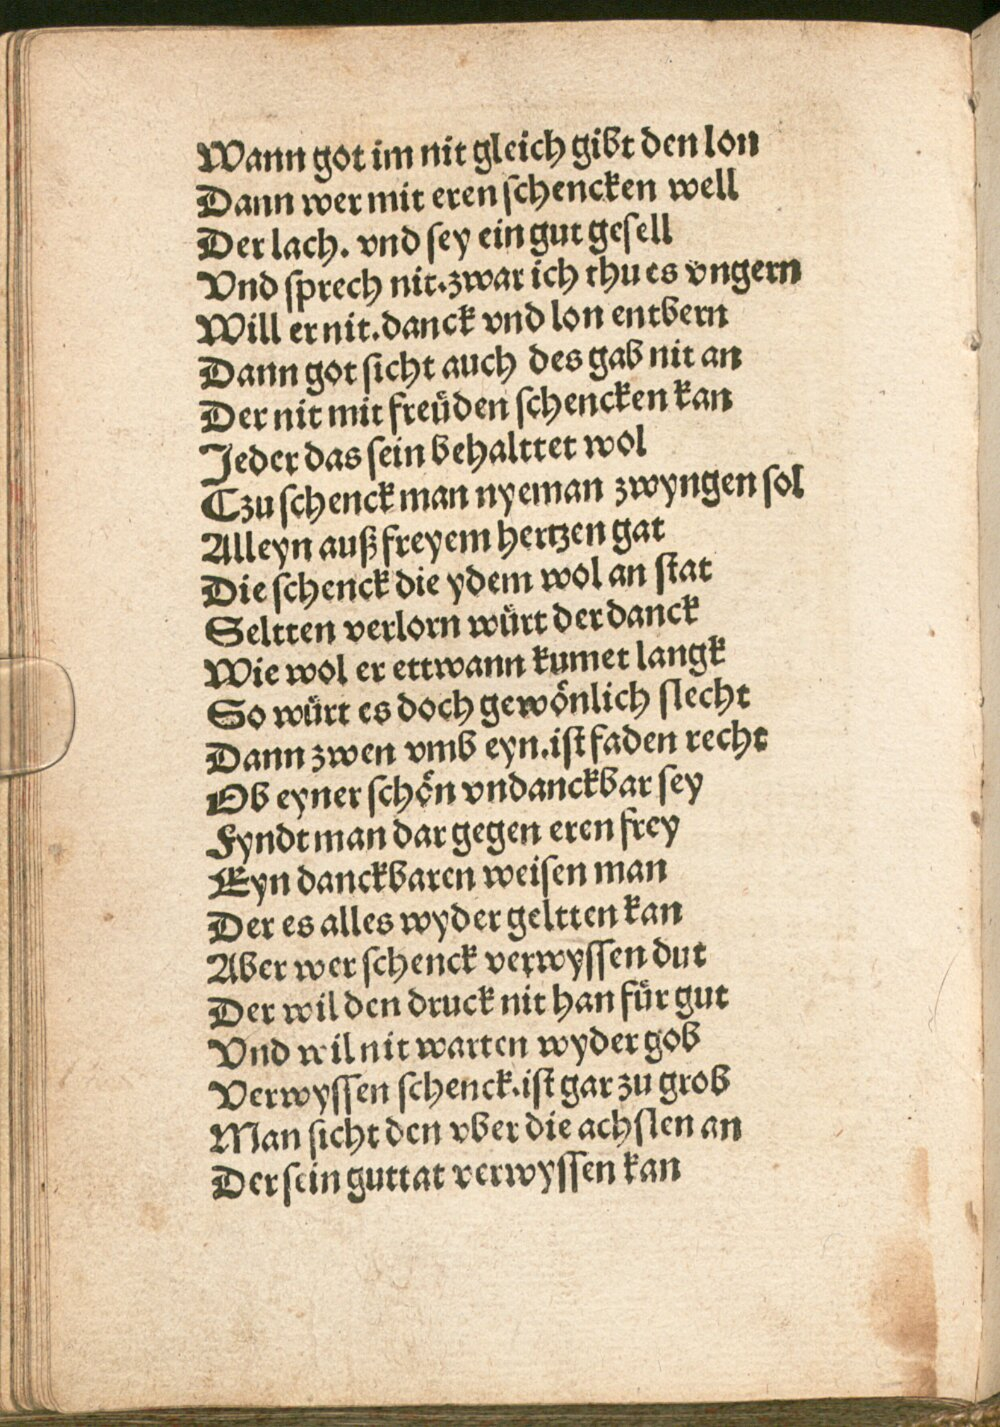 Wann got im nit gleich gibt den lon
Dann wer mit eren schencken well
Der lach. vnd sey ein gut gesell
Vnd sprech nit.zwar ich thu es vngern
Will er nit.danck vnd lon entbern
Dann got sicht auch des gab nit an
Der nit mit freüden schencken kan
Jeder das sein behalttet wol
Czu schenck man nyeman zwyngen sol
Alleyn auß freyem hertzen gat
Die schenck die ydem wol an stat
Seltten verlorn würt der danck
Wie wol er ettwann kumet langk
So würt es doch gewönlich slecht
Dann zwen vmb eyn.ist faden recht
Ob eyner schön vndanckbar sey
Fyndt man dar gegen eren frey
Eyn danckbaren weisen man
Der es alles wyder geltten kan
Aber wer schenck verwyssen dut
Der wil den druck nit han für gut
Vnd wil nit warten wyder gob
Verwyssen schenck.ist gar zu grob
Man sicht den vber die achslen an
Der sein guttat verwyssen kan